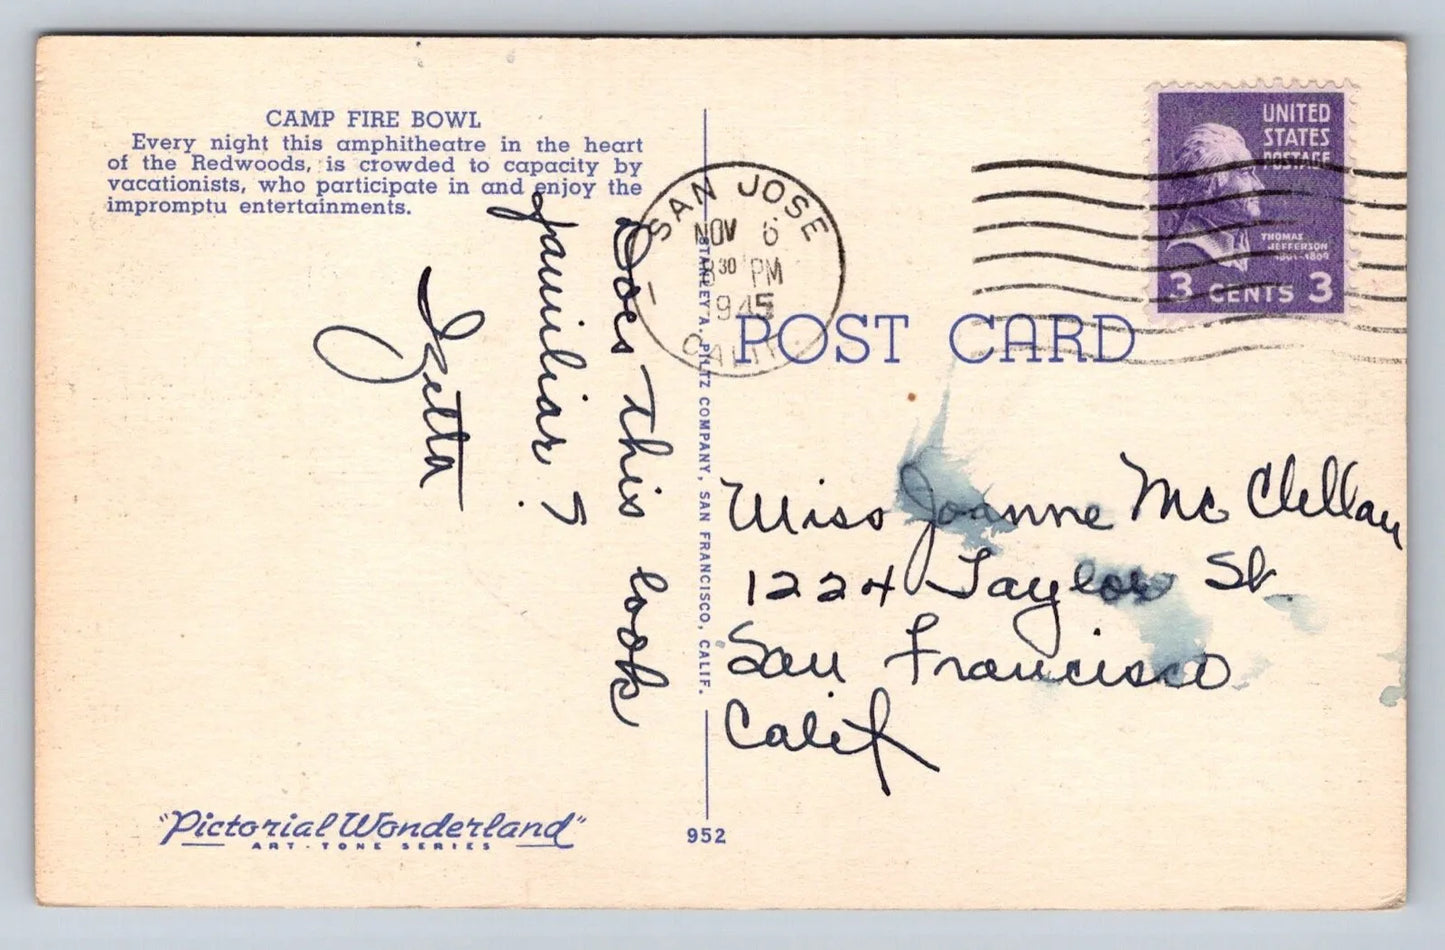 CAMP FIRE BOWL
Every night this amphitheatre in the heart
of the Redwoods, is crowded to capacity by
vacationists, who participate in and enjoy the
impromptu entertainments.
Does this look
familiar?
Zetta
"Pictorial Wonderland"
ART-TONE SERIES
STANLEY A. PILTZ COMPANY, SAN FRANCISCO, CALIF.
952
SAN JOSE
NOV 6
30 PM
1945
CALIF.
POST CARD
UNITED
STATES
POSTAGE
THOMAS
JEFFERSON
1801-1809
3 CENTS 3
Miss Joanne McClellan
1224 Taylor St.
San Francisco
Calif